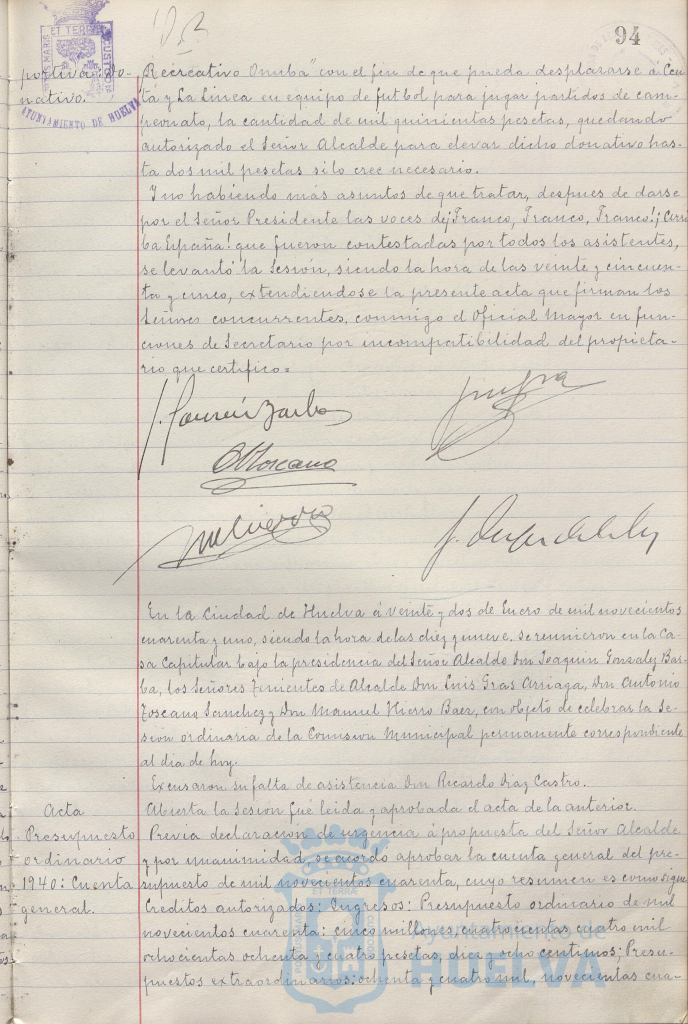 94
portiva: Do-
nativo.
AYUNTAMIENTO DE HUELVA
Recreativo Onuba" con el fin de que pueda desplazarse a Ceu-
ta y La Linea su equipo de futbol para jugar partidos de cam-
peonato, la cantidad de mil quinientas pesetas, quedando
autorizado el Señor Alcalde para elevar dicho donativo has-
ta dos mil pesetas si lo cree necesario.
Y no habiendo más asuntos de que tratar, despues de darse
por el Señor Presidente las voces de ¡Franco, Franco, Franco! ¡Arri-
ba España! que fueron contestadas por todos los asistentes,
se levantó la Sesión, siendo la hora de las veinte y cincuen-
ta y cinco, extendiendose la presente acta que firman los
Señores concurrentes, conmigo el Oficial Mayor en fun-
ciones de Secretario por incompatibilidad del propieta-
rio que certifico=
A Toscano
En la Ciudad de Huelva á veinte y dos de Enero de mil novecientos
cuarenta y uno, siendo la hora de las diez y nueve, se reunieron en la Ca-
sa Capitular bajo la presidencia del Señor Alcalde Don Joaquin Gonzalez Bar-
ba, los Señores Tenientes de Alcalde Don Luis Gras Arriaga, Don Antonio
Toscano Sanchez y Don Manuel Hierro Baez, con objeto de celebrar la Se-
sión ordinaria de la Comision Municipal permanente correspondiente
al dia de hoy.
Excusaron su falta de asistencia Don Ricardo Diaz Castro.
Acta
Abierta la Sesion fué leida y aprobada el acta de la anterior.
Presupuesto
ordinario
1940: Cuenta
general.
Previa declaracion de urgencia á propuesta del Señor Alcalde
y por unanimidad, se acordo aprobar la cuenta general del pre-
supuesto de mil novecientos cuarenta, cuyo resumen es como sigue
Creditos autorizados: Ingresos: Presupuesto ordinario de mil
novecientos cuarenta: cinco millones, cuatrocientas cuatro mil
ochocientas ochenta y cuatro pesetas, diez y ocho centimos; Presu-
puestos extraordinarios: ochenta y cuatro mil, novecientas cua-
Ayuntamiento de
HUELVA